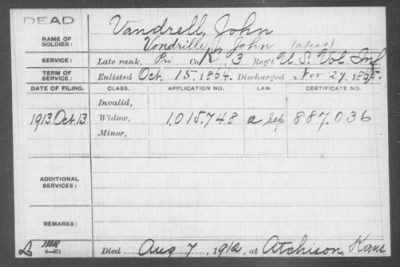 DEAD
NAME OF SOLDIER: Vandrell, John
Vondrille, John (alias)
SERVICE: Late rank, Pri Co. K, 3 Reg't U.S. Vol. Inf
TERM OF SERVICE: Enlisted Oct. 15, 1864. Discharged Nov 29, 1865.
DATE OF FILING. CLASS. APPLICATION NO. LAW. CERTIFICATE NO.
Invalid,
1913 Oct 13 Widow, 1,015,748 a sep 887,036
Minor,
ADDITIONAL SERVICES:
REMARKS:
Died Aug 7, 1912, at Atchison, Kans